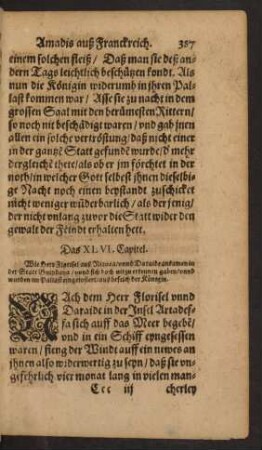 Amadis auß Franckreich. 387
einem solchen fleiß / Daß man sie deß an-
dern Tags leichtlich beschützen kondt. Als
nun die Königin widerumb in jhren Pal-
last kommen war / Asse sie zu nacht in dem
grossen Saal mit den berümesten Rittern /
so noch nit beschädigt waren / vnd gab jnen
allen ein solche vertröstung / daß nicht einer
in der gantzẽ Statt gefundẽ wurde / d' mehr
dergleichẽ thete / als ob er jm förchtet in der
noth / in welcher Gott selbest jhnen dieselbi-
ge Nacht noch einen beystandt zuschicket
nicht weniger wůderbarlich / als der jenig /
der nicht vnlang zuvor die Statt wider den
gewalt der Feindt erhalten hett.
Das XLVI. Capitel.
Wie Herr Florisel auß Niquea / vnnd Daraide ankamen in
der Statt Guindaya / vnnd sich doch nit zu erkennen gaben / vnnd
wurden im Pallast eingelosiert / auß befelch der Königin.
NAch dem Herr Florisel vnnd
Daraide in der Insel Artadef-
fa sich auff das Meer begebẽ /
vnd in ein Schiff eyngesessen
waren / fieng der Windt auff ein newes an
jhnen also widerwertig zu seyn / daß sie vn-
gefehrlich vier monat lang in vielen man-
Ccc iij cherley